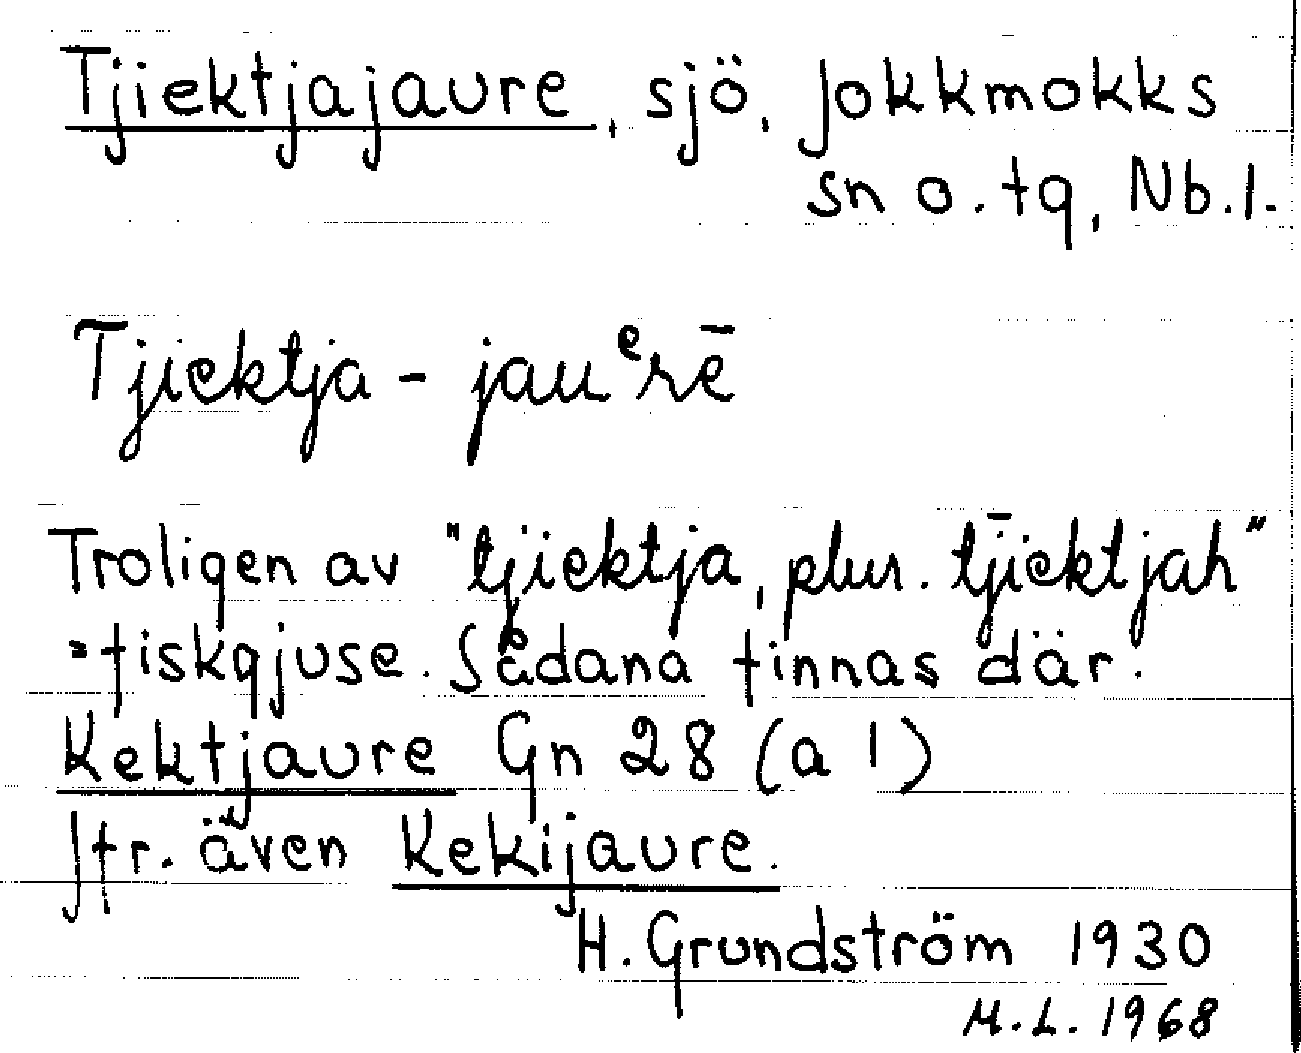 Tjiektjajaure, sjö, Jokkmokks
sn o. tg, Nb.l.
Tjiektja - jauᵉrē
Troligen av "tjiektja, plur. tj̄iektjah"
=fiskgjuse. Sådana finnas där.
Kektjaure Gn 28 (a 1)
Jfr. även Kekijaure.
H. Grundström 1930
M.L. 1968